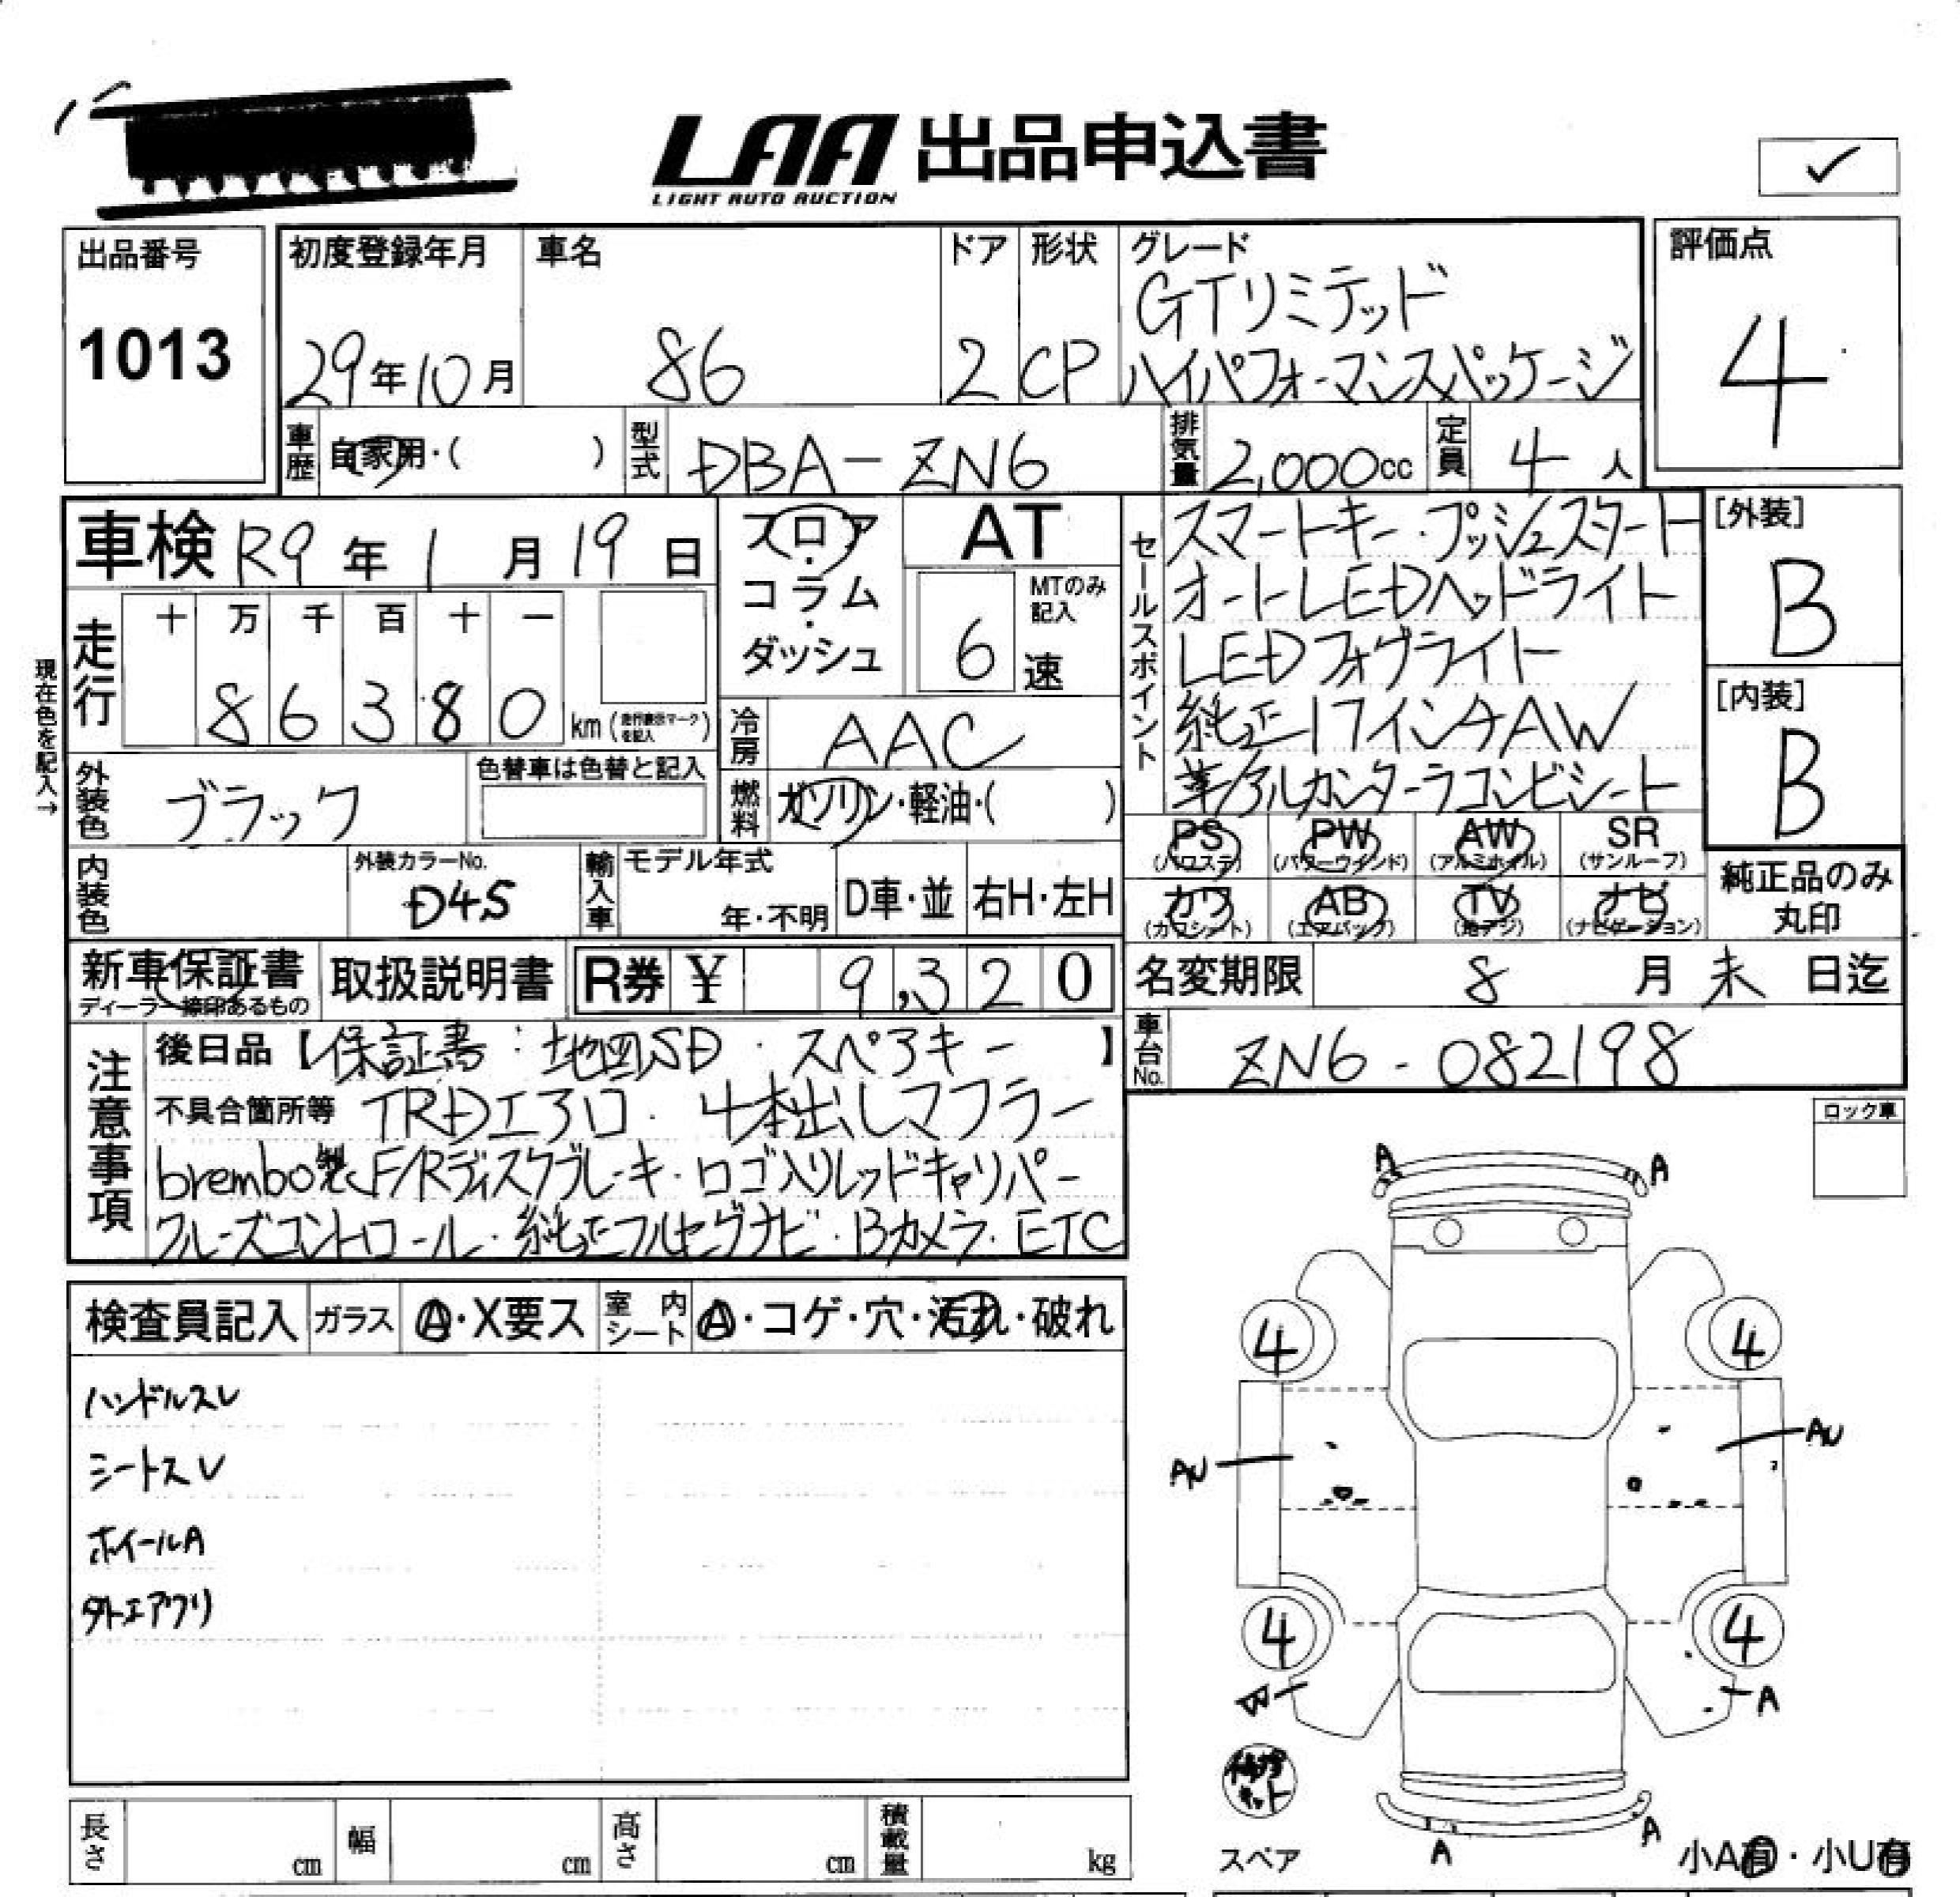 LAA 出品申込書
LIGHT AUTO AUCTION
出品番号
1013
初度登録年月
29年10月
車名
86
ドア
2
形状
CP
グレード
GTリミテッド
ハイパフォーマンスパッケージ
評価点
4
車歴 自家用・( )
型式 DBA-ZN6
排気量 2,000cc
定員 4人
車検 R9年1月19日
フロア・コラム・ダッシュ
AT
6速
MTのみ記入
セールスポイント
スマートキー・プッシュスタート
オートLEDヘッドライト
LEDフォグライト
純正17インチAW
革/アルカンターラコンビシート
[外装]
B
[内装]
B
現在色を記入→
走行
十 万 千 百 十 一
8 6 3 8 0 km (走行表示マークを記入)
冷房 AAC
燃料 ガソリン・軽油・( )
外装色 ブラック
色替車は色替と記入
内装色
外装カラーNo.
D4S
輸入車
モデル年式
年・不明
D車・並
右H・左H
PS
(パワステ)
PW
(パワーウインド)
AW
(アルミホイル)
SR
(サンルーフ)
カワ
(カワシート)
AB
(エアバッグ)
TV
(地デジ)
ナビ
(ナビゲーション)
純正品のみ
丸印
新車保証書
ディーラー捺印あるもの
取扱説明書
R券 ¥ 9,320
名変期限 8月末日迄
車台No. ZN6-082198
注意事項
後日品【保証書・地図SD・スペアキー】
不具合箇所等 TRDエアロ・4本出しマフラー
brembo製F/Rディスクブレーキ・ロゴ入りレッドキャリパー
クルーズコントロール・純正フルセグナビ・Bカメラ・ETC
ロック車
A A
検査員記入
ガラス A・X要ス
室内シート A・コゲ・穴・汚れ・破れ
ハンドルスレ
シートスレ
ホイールA
外エアクリ
4 4
AU AU
4 4
A
修理キット
スペア
A A
小A有・小U有
長さ cm
幅 cm
高さ cm
積載量 kg